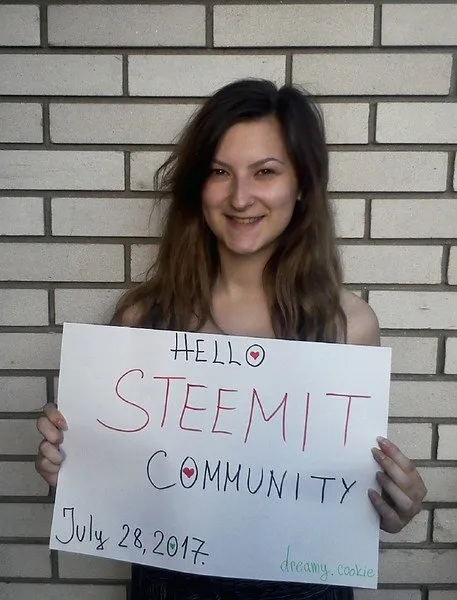 HELLO
STEEMIT
COMMUNITY
July 28, 2017.
dreamy.cookie